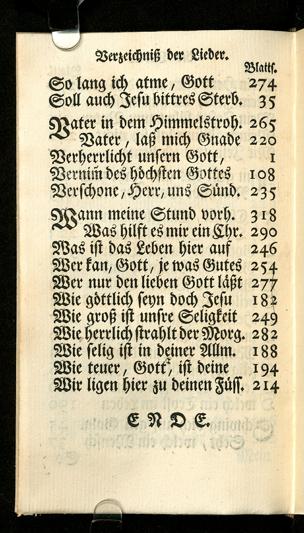 Verzeichniß der Lieder.
Blatts.
So lang ich atme, Gott 274
Soll auch Jesu bittres Sterb. 35
Vater in dem Himmelstroh. 265
Vater, laß mich Gnade 220
Verherrlicht unsern Gott, 1
Vernim̅ des höchsten Gottes 108
Verschone, Herr, uns Sünd. 235
Wann meine Stund vorh. 318
Was hilft es mir ein Chr. 290
Was ist das Leben hier auf 246
Wer kan, Gott, je was Gutes 254
Wer nur den lieben Gott läßt 277
Wie göttlich seyn doch Jesu 182
Wie groß ist unsre Seligkeit 249
Wie herrlich strahlt der Morg. 282
Wie selig ist in deiner Allm. 188
Wie teuer, Gott, ist deine 194
Wir ligen hier zu deinen Füss. 214
ENDE.